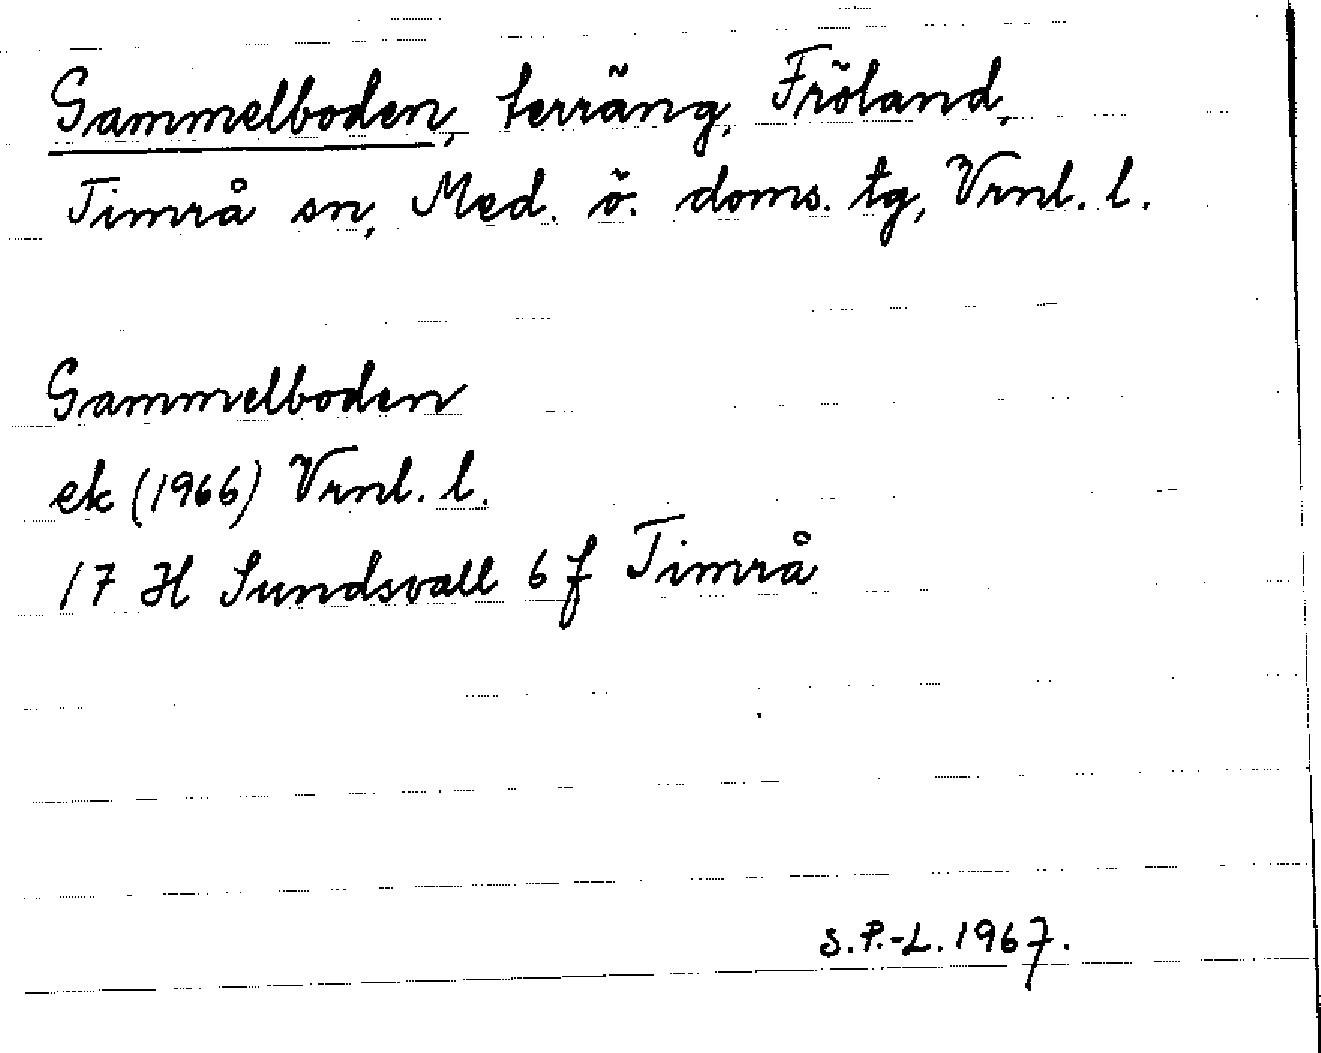 Gammelboden, terräng, Fröland,
Timrå sn, Med. ö. doms. tg, Vrnl. l.
Gammelboden
ek (1966) Vrnl. l.
17 H Sundsvall 6 f Timrå
S.P.-L. 1967.